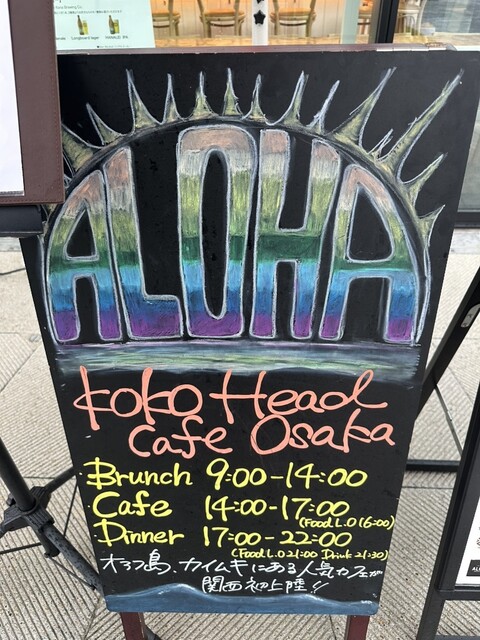 Longboard lager
ALOHA
Koko Head
Cafe Osaka
Brunch 9:00-14:00
Cafe 14:00-17:00
(Food L.O 16:00)
Dinner 17:00-22:00
(Food L.O 21:00 Drink 21:30)
オアフ島、カイムキにある人気カフェが
関西初上陸!!